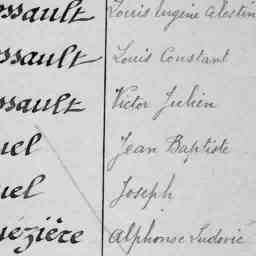 ossault Louis Eugène Célestin
ossault Louis Constant
ossault Victor Julien
uel Jean Baptiste
uel Joseph
uézière Alphonse Ludovic